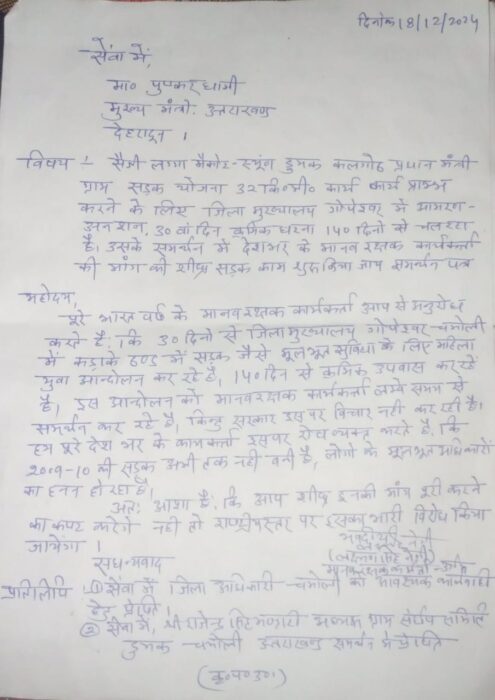 दिनांक 18/12/2024
सेवा में,
मा० पुष्कर धामी
मुख्य मंत्री उत्तराखण्ड
देहरादून ।
विषय :- सैंजी लगा मैकोट-स्यूंण डुमक कलगोठ प्रधान मंत्री
ग्राम सड़क योजना 32 कि०मी० कार्य कार्य प्रारम्भ
करने के लिए जिला मुख्यालय गोपेश्वर में आमरण-
अनशन, 30 वा दिन क्रमिक धरना 140 दिनो से चल रहा
है। उसके समर्थन में देशभर के मानव रक्षक कार्यकर्ता
की मांग की शीघ्र सड़क काम शुरू किया जाय समर्थन पत्र
महोदय,
पूरे भारत वर्ष के मानवरक्षक कार्यकर्ता आप से अनुरोध
करते है, कि 30 दिनो से जिला मुख्यालय गोपेश्वर-चमोली
में कड़ाके ठण्ड में सड़क जैसे मूलभूत सुविधा के लिए महिला
युवा आन्दोलन कर रहे है, 140 दिन से क्रमिक उपवास कर रहे
है, इस आन्दोलन को मानवरक्षक कार्यकर्ता लम्बे समय से
समर्थन कर रहे है, किन्तु सरकार इस पर विचार नही कर रही है।
हम पूरे देश भर के कार्यकर्ता इसपर रोष व्यक्त करते है, कि
2009-10 की सड़क अभी तक नही बनी है, लोगो के मूलभूत अधिकारों
का हनन हो रहा है।
अतः आशा है, कि आप शीघ्र इनकी मांग पूरी करने
का कष्ट करेगें नही तो राष्ट्रीयस्तर पर इसका भारी विरोध किया
जायेगा ।
सधन्यवाद
भवदीय
मानवरक्षक कार्यकर्ता
प्रतिलिपि ① सेवा में जिला अधिकारी - चमोली को आवश्यक कार्यवाही
हेतु प्रेषित ।
② सेवा में, श्री राजेन्द्र सिंह भण्डारी अध्यक्ष ग्राम संघर्ष समिति
डुमक - चमोली उत्तराखण्ड समर्थन में प्रेषित
(कृ०प०उ०)